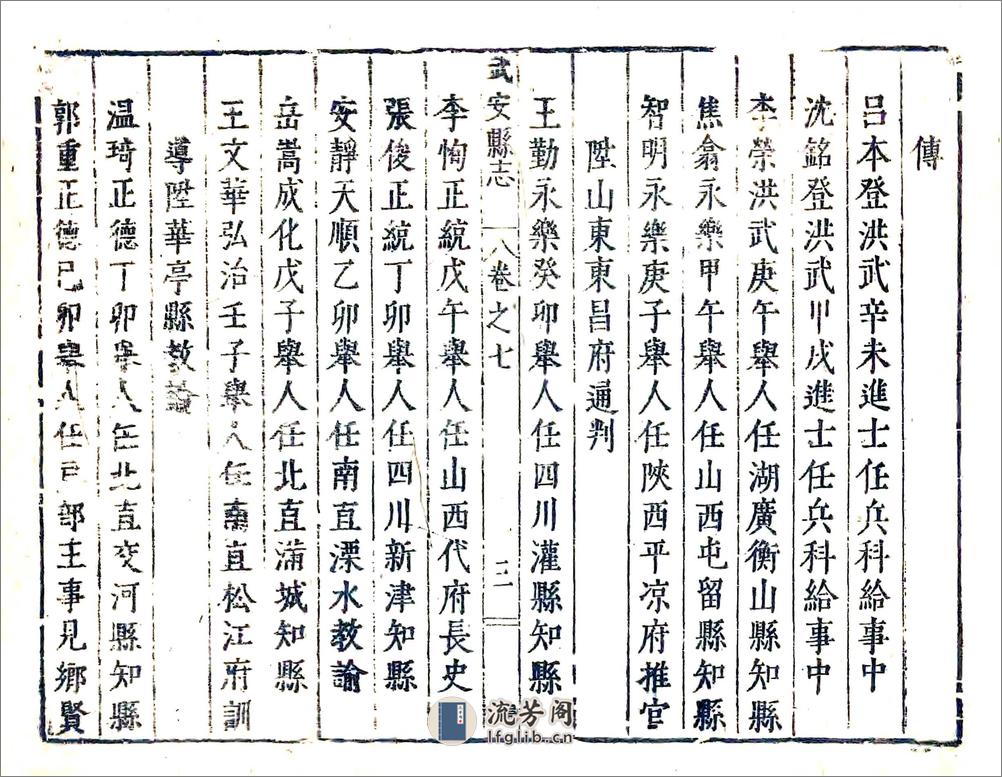 傳
呂本登洪武辛未進士任兵科給事中
沈銘登洪武甲戌進士任兵科給事中
李榮洪武庚午舉人任湖廣衡山縣知縣
焦翕永樂甲午舉人任山西屯留縣知縣
智明永樂庚子舉人任陝西平凉府推官
陞山東東昌府通判
王勤永樂癸卯舉人任四川灌縣知縣
武安縣志 卷之七 三
李恂正統戊午舉人任山西代府長史
張俊正統丁卯舉人任四川新津知縣
安靜天順乙卯舉人任南直溧水教諭
岳嵩成化戊子舉人任北直蒲城知縣
王文華弘治壬子舉人任南直松江府訓
導陞華亭縣教諭
温琦正德丁卯舉人任北直交河縣知縣
郭重正德己卯舉人任戸部主事見鄉賢
流芳阁
lfglib.cn